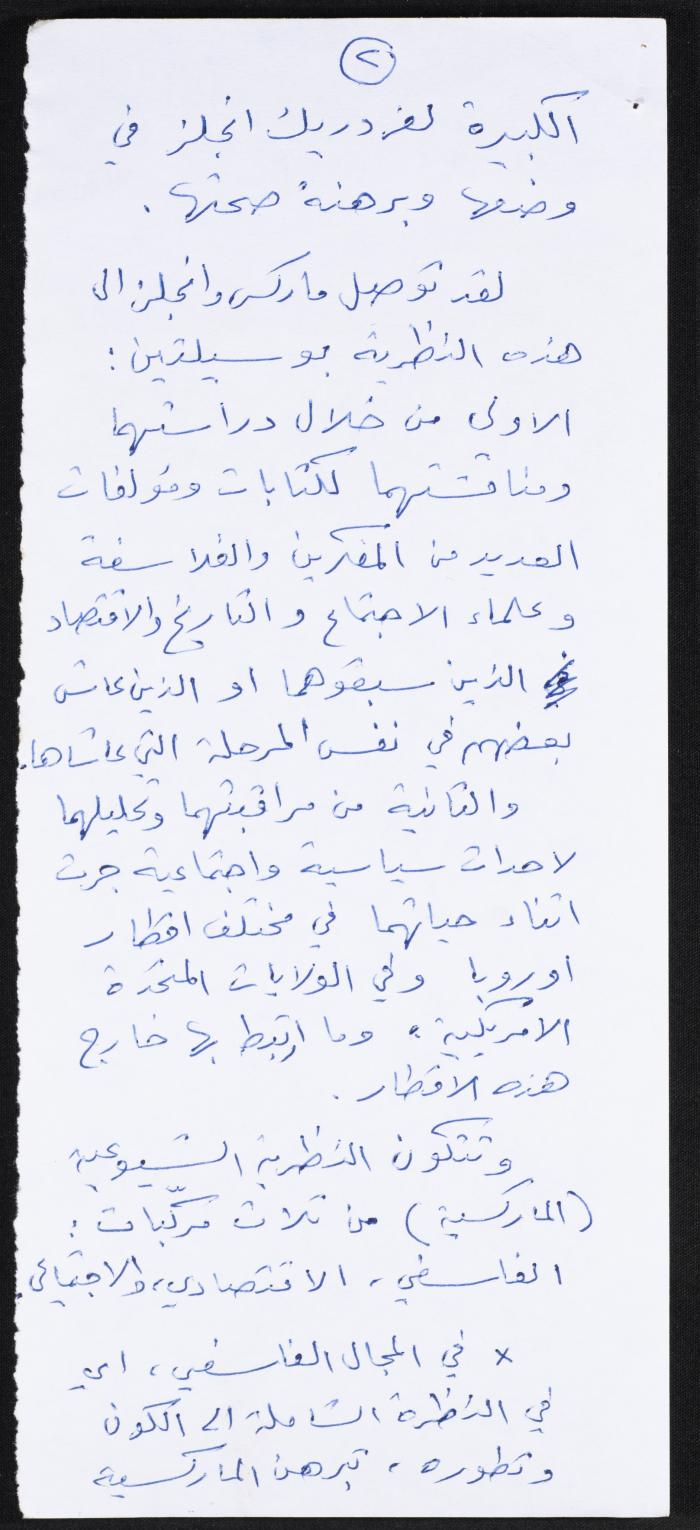 ٢
الكبيرة لفردريك انجلز في
وضعها وبرهنة صحتها .
لقد توصل ماركس وانجلز الى
هذه النظرية بوسيلتين :
الاولى من خلال دراستهما
ومناقشتهما لكتابات ومؤلفات
العديد من المفكرين والفلاسفة
وعلماء الاجتماع والتاريخ والاقتصاد
الذين سبقوهما او الذين عاش
بعضهم في نفس المرحلة التي عاشاها.
والثانية من مراقبتهما وتحليلهما
لاحداث سياسية واجتماعية جرت
اثناء حياتهما في مختلف اقطار
اوروبا وفي الولايات المتحدة
الامريكية، وما ارتبط بها خارج
هذه الاقطار .
وتتكون النظرية الشيوعية
(الماركسية) من ثلاث مركّبات :
الفلسفي، الاقتصادي، والاجتماعي.
× في المجال الفلسفي، اي
في النظرة الشاملة الى الكون
وتطوره، تبرهن الماركسية